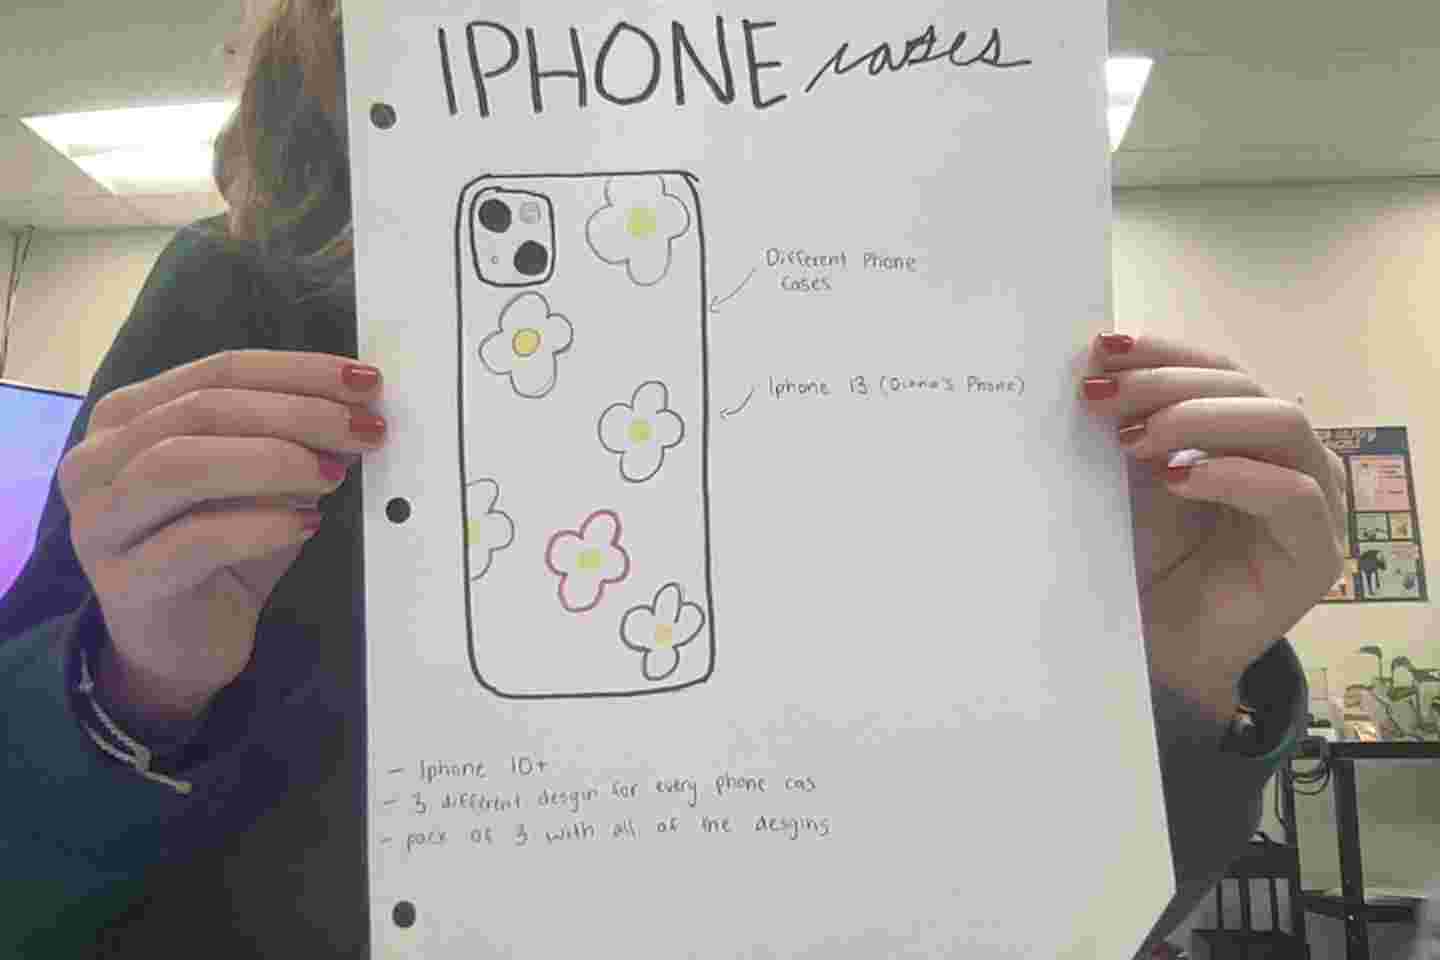 IPHONE cases
Different Phone
Cases
Iphone 13 (Diana's Phone)
- Iphone 10+
- 3 different desgin for every phone cas
- pack of 3 with all of the desgins